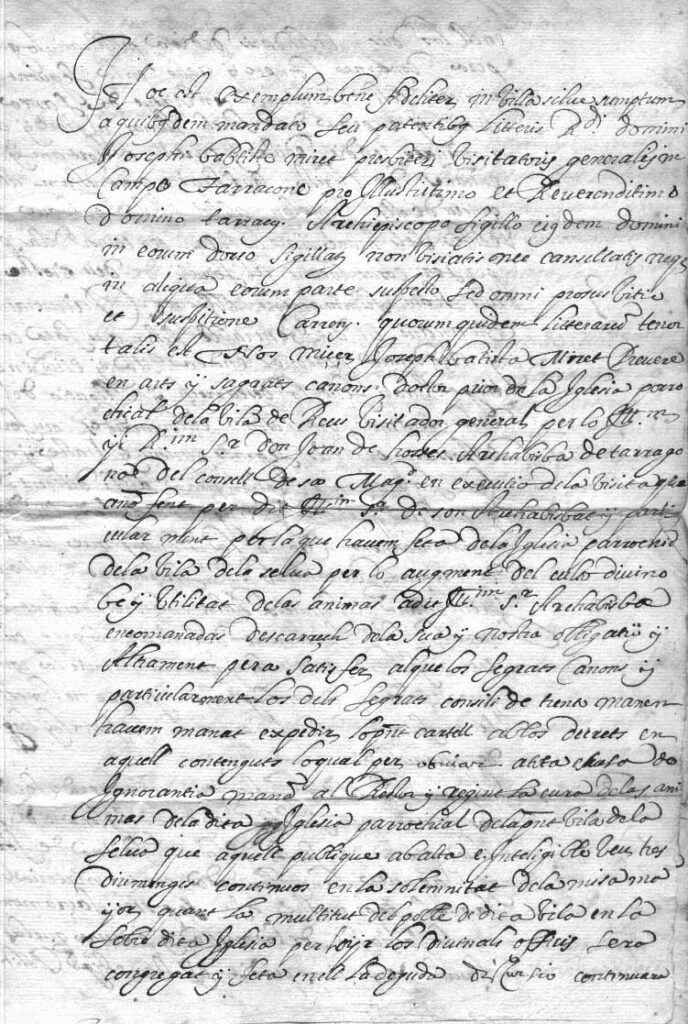 Hoc est exemplum bene fideliter in villa silve sumptum
a quibusdem mandato seu patentibus litteris Rdi. domini
Joseph babtista miret presbiteri visitatoris generalis in
Campo Tarracone pro Illustrissimo et Reverendissimo
Domino tarracn. Archiepiscopo sigillo ejusdem domini
in eorum dorso sigillatis non visiatis nec cansellatis neq
in aliqua eorum parte suspectis sed omni prorsus vitio
et suspitione Carren. quorum quidem litteraru tenor
talis est Nos micer Joseph batista Miret Prevere
en arts y sagrats canons Doctor prior de la Iglesia parro
chial de la vila de Reus Visitador general per lo Illm.
y Rim. Sr. don Joan de Hosses Archabisba de tarrago
na del consell de sa Magt. en executio de la visita que
anã fent per dit Illim. Sr. de son Archabisbat y parti
cular ment per la que havem feta de la Iglesia parrochial
de la vila de la selva per lo augment del culto divino
be y utilitat de las animas a dit Illim. Sr. Archabisba
encomanadas descarrech de la sua y nostra obligatio y
Altrament per a satisfer al que los segrats Canons y
particularment los dels segrats consili de trento manen
havem manat expedir lo pnt cartell ab los decrets en
aquell contenguts lo qual per obviar a tota escusa de
Ignorantia manã al Rector y regint la cura de las ani
mas de la dita Iglesia parrochial de la pnt vila de la
selva que aquell publique ab alta e inteligible veu tres
diumenges continuos en la solemnitat de la misa ma
yor quant la multitut del poble de dita vila en la
sobre dita Iglesia per hoyr los divinals officis sera
congregat y feta en ell la deguda discursio continuara